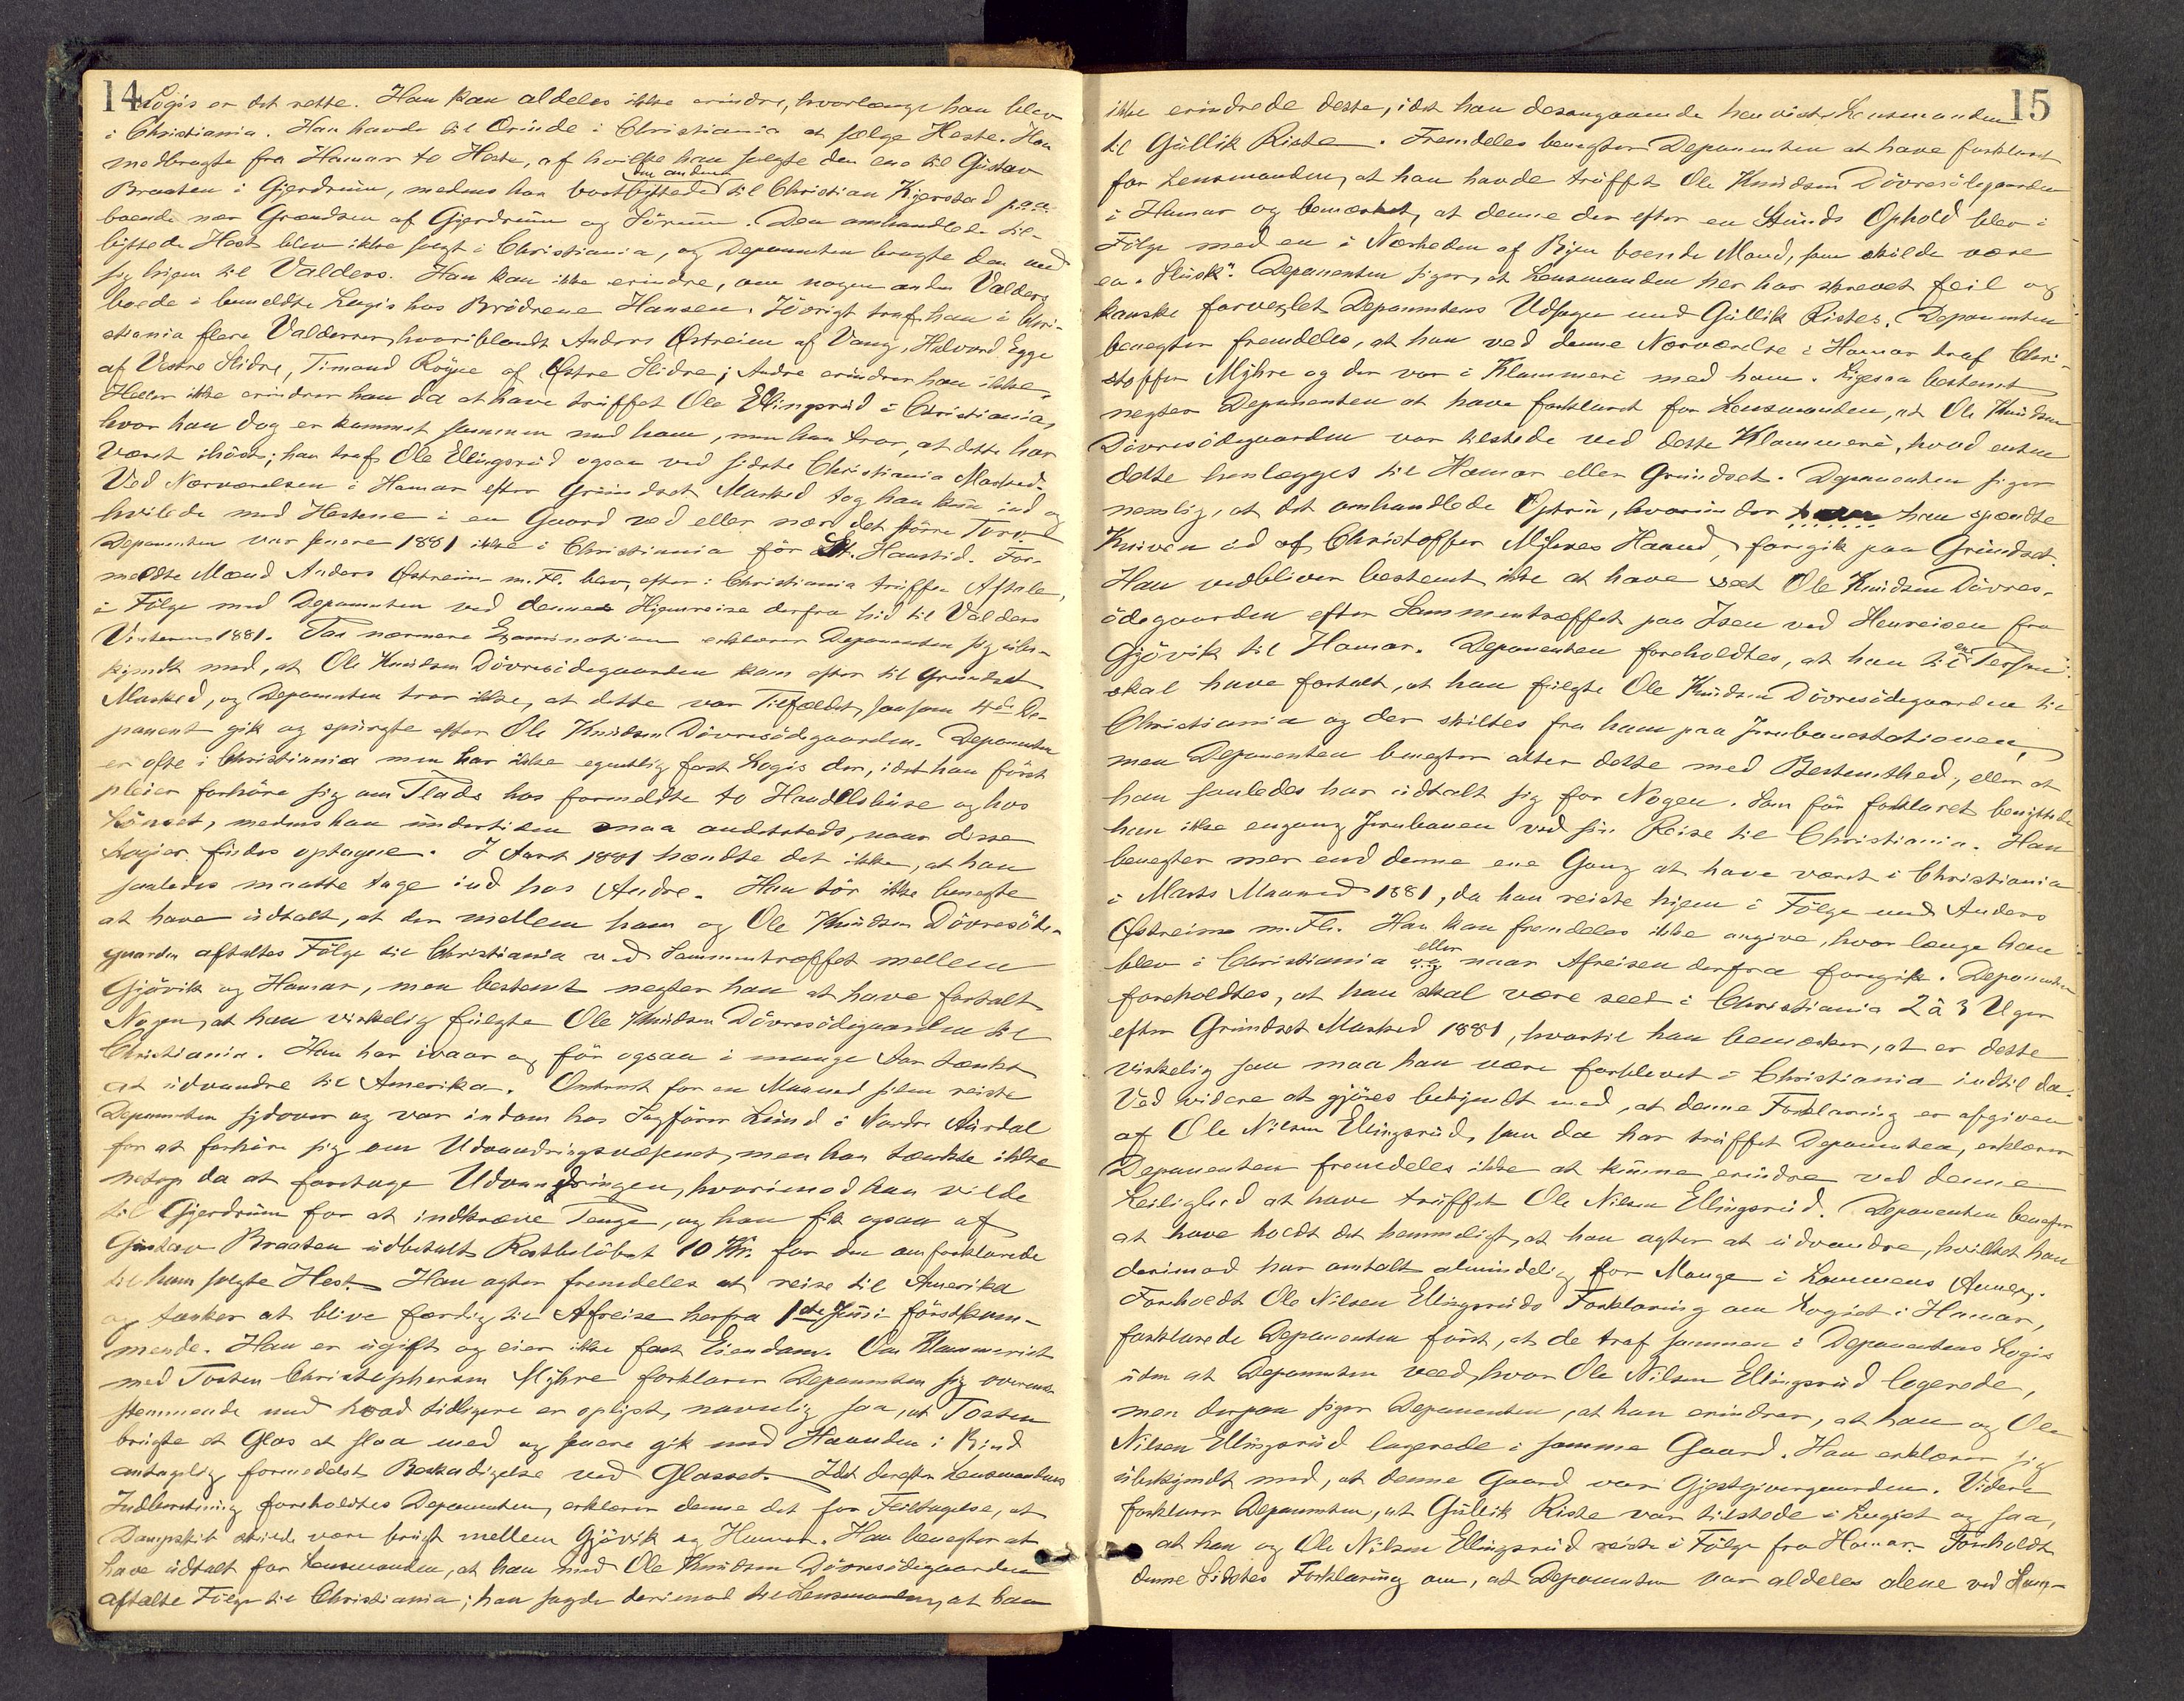 14
Logis er det rette. Han kan aldeles ikke erindre, hvorlænge han blev
i Christiania. Han havde til Ærinde i Christiania at sælge Heste. Han
medbragte fra Hamar to Heste, af hvilke han solgte den ene til Gustav
den anden
Braaten i Gjerdrum, medens han bortbyttede til Christian Kjerstad paa
boende nær Grændsen af Gjerdrum og Sörum. Den omhandlede til-
byttede Hest blev ikke solgt i Christiania, og Deponenten bragte den med
sig hjem til Valders. Han kan ikke erindre, om nogen anden Valders
boede i bemeldte Logis hos Brödrene Hansen. Iövrigt traf han i Chri-
stiania flere Valderser, hvoriblandt Anders Østreim af Vang, Halvord Egge
af Vestre Slidre, Timand Röyne af Østre Slidre; Andre erindrer han ikke.
Heller ikke erindrer han da at have truffet Ole Ellingsrud i Christiania,
hvor han dog er kommet sammen med ham, men han tror, at dette har
været ihöst; han traf Ole Ellingsrud ogsaa ved sidste Christiania Marked.
Ved Nærværelsen i Hamar efter Grundset Marked tog han kun ind og
hvilede med Hestene i en Gaard ved eller nær det större Torv.
Deponenten var senere 1881 ikke i Christiania för St. Hanstid. For-
meldte Mænd Anders Østreim m. Fl. blev, efter i Christiania truffen Aftale,
i Fölge med Deponenten ved dennes Hjemreise derfra hid til Valders
Vinteren 1881. Paa nærmere Examination erklærer Deponenten sig ube-
kjendt med, at Ole Knudsen Dövresödegaarden kom efter til Grundset
Marked, og Deponenten tror ikke, at dette var Tilfældet, saasom 4de De-
ponent gik og spurgte efter Ole Knudsen Dövresödegaarden. Deponenten
er ofte i Christiania men har ikke egentlig fast Logis der, idet han först
pleier forhöre sig om Plads hos formeldte to Handelshuse og hos
medens han undertiden maa andetsteds, naar disse
Logier findes optagne. I Aaret 1881 hændte det ikke, at han
saaledes maatte tage ind hos Andre. Han tör ikke benegte
at have udtalt, at der mellem ham og Ole Knudsen Dövresöde-
gaarden aftaltes Fölge til Christiania ved Sammentræffet mellem
Gjövik og Hamar, men bestemt negter han at have fortalt
Nogen, at han virkelig fulgte Ole Knudsen Dövresödegaarden til
Christiania. Han har ivaar og för ogsaa i mange Aar tænkt
at udvandre til Amerika. Omtrent for en Maaned siden reiste
Deponenten sydover og var indom hos Sagförer Lund i Nordre Aurdal
for at forhöre sig om Udvandringsvæsenet, men han tænkte ikke
netop da at foretage Udvandringen, hvorimod han vilde
til Gjerdrum for at indkræve Penge, og han fik ogsaa af
Gustav Braaten udbetalt Restbelöbet 10 Kr. for den omforklarede
til ham solgte Hest. Han agter fremdeles at reise til Amerika
og tænker at blive færdig til Afreise herfra 1ste Juni förstkom-
mende. Han er ugift og eier ikke fast Eiendom. Om Klammeriet
med Tosten Christophersen Myhre forklarer Deponenten sig overens-
stemmende med hvad tidligere er oplyst, navnlig saa, at Tosten
brugte et Glas at slaa med og senere gik med Haanden i Bind
antagelig formedelst Beskadigelse ved Glasset. Idet derefter Lensmandens
Indberetning foreholdtes Deponenten, erklærer denne det for Feiltagelse, at
Dampskib skulde være brugt mellem Gjövik og Hamar. Han benegter at
have udtalt for Lensmanden, at han med Ole Knudsen Dövresödegaarden
aftalte Fölge til Christiania; han sagde derimod til Lensmanden, at han
15
ikke erindrede dette, idet han desangaaende henviste Lensmanden
til Gullik Riste. Fremdeles benegter Deponenten at have forklaret
for Lensmanden, at han havde truffet Ole Knudsen Dövresödegaarden
i Hamar og bemærket, at denne der efter en Stunds Ophold blev i
Fölge med en i Nærheden af Byen boende Mand, som skulde være
en "Slusk". Deponenten siger, at Lensmanden her har skrevet feil og
kanske forvexlet Deponentens Udsagn med Gullik Ristes. Deponenten
benegter fremdeles, at han ved denne Nærværelse i Hamar traf Chri-
stoffer Myhre og der var i Klammeri med ham. Ligesaa bestemt
negter Deponenten at have forklaret for Lensmanden, at Ole Knudsen
Dövresödegaarden var tilstede ved dette Klammeri, hvad enten
dette henlægges til Hamar eller Grundset. Deponenten siger
nemlig, at det omhandlede Optrin, hvorunder han spændte
Kniven ud af Christoffer Myhres Haand, foregik paa Grundset.
Han vedbliver bestemt ikke at have seet Ole Knudsen Dövres-
ödegaarden efter Sammentræffet paa Isen ved Henreisen fra
Gjövik til Hamar. Deponenten foreholdtes, at han til en Person
skal have fortalt, at han fulgte Ole Knudsen Dövresödegaarden til
Christiania og der skiltes fra ham paa Jernbanestationen,
men Deponenten benegter atter dette med Bestemthed, eller at
han saaledes har udtalt sig for Nogen. Som för forklaret benyttede
han ikke engang Jernbanen ved sin Reise til Christiania. Han
benegter mer end denne ene Gang at have været i Christiania
i Marts Maaned 1881, da han reiste hjem i Fölge med Anders
Østreim m. Fl. Han kan fremdeles ikke angive, hvor længe han
eller
blev i Christiania og naar Afreisen derfra foregik. Deponenten
foreholdtes, at han skal være seet i Christiania 2 à 3 Uger
efter Grundset Marked 1881, hvortil han bemærker, at er dette
virkelig saa maa han være forblevet i Christiania indtil da.
Ved videre at gjöres bekjendt med, at denne Forklaring er afgiven
af Ole Nilsen Ellingsrud, som da har truffet Deponenten, erklærer
Deponenten fremdeles ikke at kunne erindre ved denne
Leilighed at have truffet Ole Nilsen Ellingsrud. Deponenten benegter
at have holdt det hemmeligt, at han agter at udvandre, hvilket han
derimod har omtalt almindelig for Mange i Lommens Annex.
Foreholdt Ole Nilsen Ellingsruds Forklaring om Logiet i Hamar,
forklarede Deponenten först, at de traf sammen i Deponentens Logis
uden at Deponenten veed, hvor Ole Nilsen Ellingsrud logerede,
men derpaa siger Deponenten, at han erindrer, at han og Ole
Nilsen Ellingsrud logerede i samme Gaard. Han erklærer sig
ubekjendt med, at denne Gaard var Gjestgivergaarden. Videre
forklarer Deponenten, at Gullik Riste var tilstede i Logiet og saa,
at han og Ole Nilsen Ellingsrud reiste i Fölge fra Hamar. Foreholdt
denne Sidstes Forklaring om, at Deponenten var aldeles alene ved Ham-